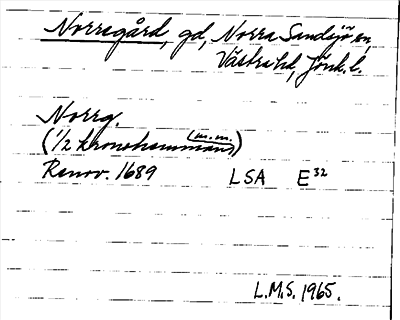 Norregård, gd, Norra Sandsjö sn,
Västra hd, Jönk. l.
Norrg.
(1/2 kronohemmans (m.m.))
Renov. 1689 LSA E32
L.M.S. 1965.